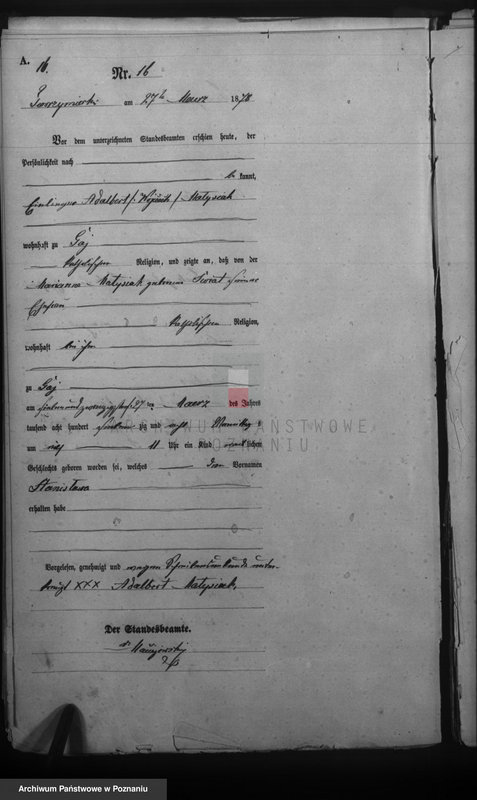 A.
16.
Nr. 16
am 27 ten Maerz 1878
Vor dem unterzeichneten Standesbeamten erschien heute, der
Persönlichkeit nach
be kannt,
Adalbert /: Wojciech / Matysiak
wohnhaft zu Gaj
katholischer Religion, und zeigte an, daß von der
Marianna Matysiak geborenen seiner
Ehefrau
katholischer Religion,
wohnhaft bei ihm
zu Gaj
am sieben und zwanzigsten 27 ten Maerz des Jahres
tausend acht hundert sieben zig und acht Vormittag s
um elf 11 Uhr ein Kind weiblichen
Geschlechts geboren worden sei, welches den Vornamen
Stanisława
erhalten habe
ARCHIWUM PAŃSTWOWE
W POZNANIU
Vorgelesen, genehmigt und wegen Schreibensunkunde unter-
kreuzt XXX Adalbert Matysiak.
Der Standesbeamte.
Archiwum Państwowe w Poznaniu